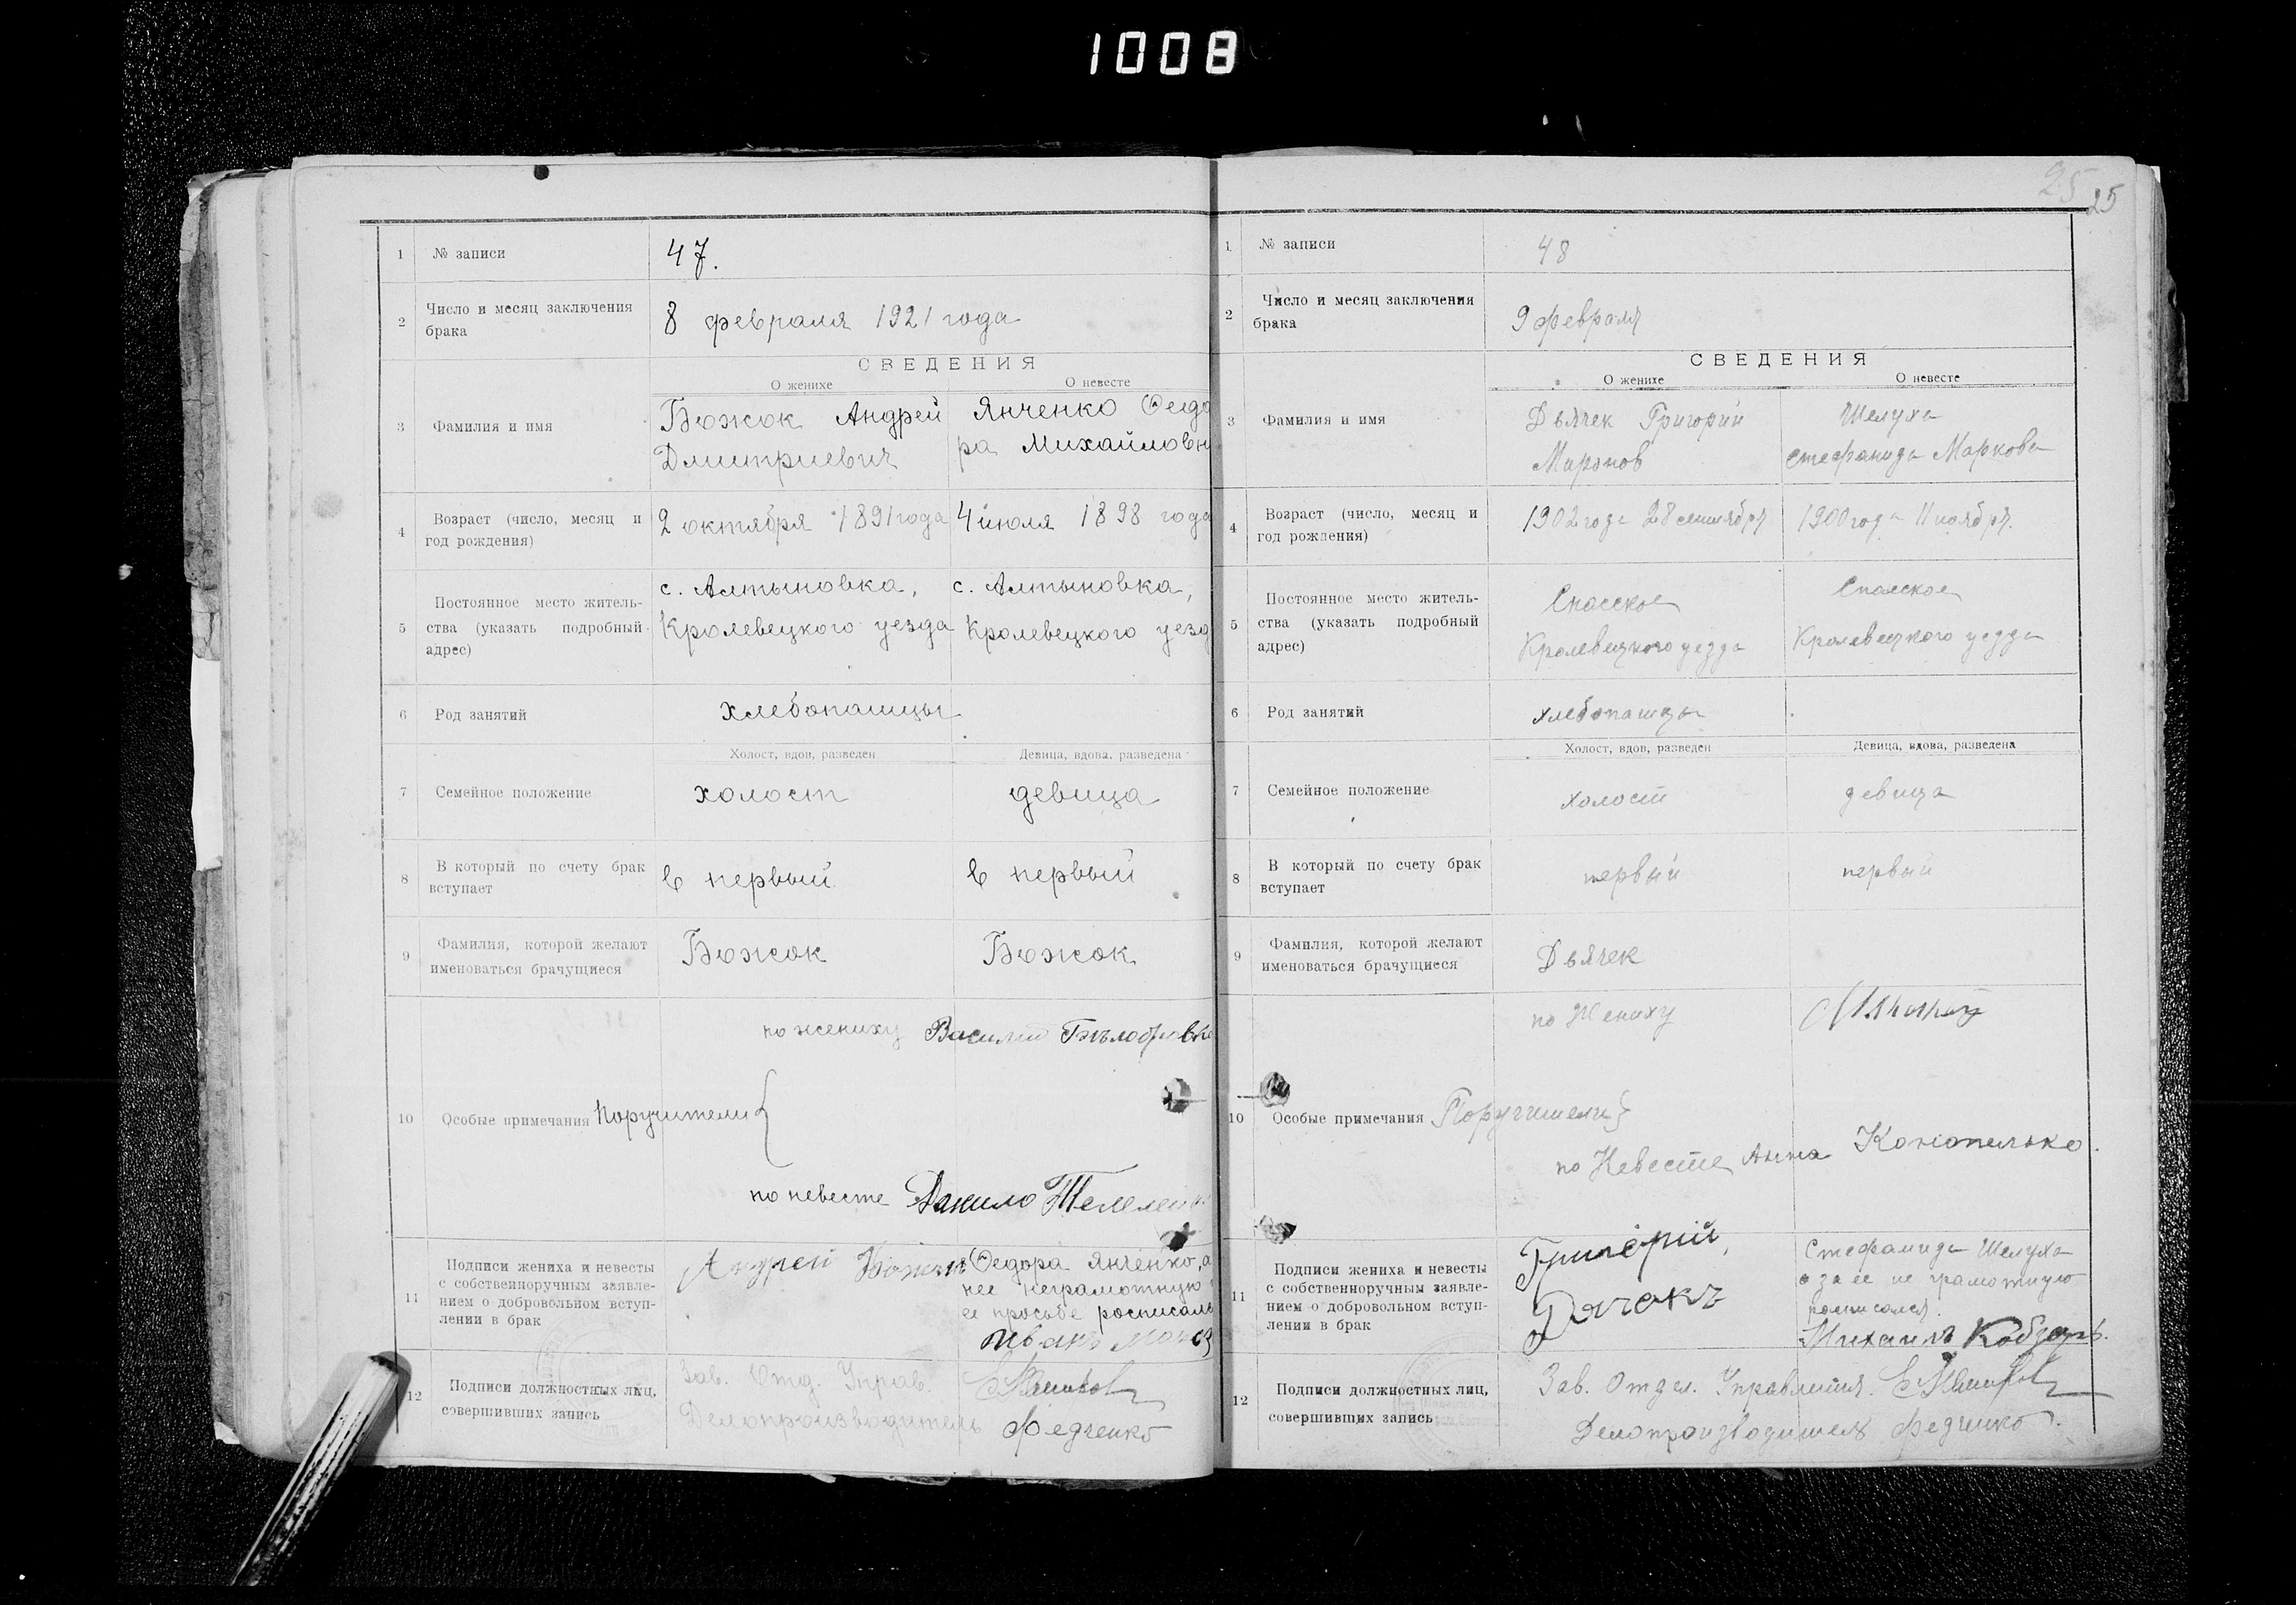 1008
25 25
1 № записи 47.
2 Число и месяц заключения
брака
8 февраля 1921 года
СВЕДЕНИЯ
О женихе О невесте
3 Фамилия и имя
Божок Андрей
Дмитриевич
Янченко Феодо
ра Михайловн
4 Возраст (число, месяц и
год рождения)
2 октября 1891 года
4 июля 1898 года
5 Постоянное место житель-
ства (указать подробный
адрес)
с. Алтыновка,
Кролевецкого уезда
с. Алтыновка,
Кролевецкого уезд
6 Род занятий хлебопашцы
Холост, вдов, разведен Девица, вдова, разведена
7 Семейное положение холост девица
8 В который по счету брак
вступает
в первый в первый
9 Фамилия, которой желают
именоваться брачущиеся
Божок Божок
по жениху Василий
10 Особые примечания Поручители {
по невесте Данило
11 Подписи жениха и невесты
с собственноручным заявле-
нием о добровольном вступ-
лении в брак
Андрей Божок
Феодора Янченко, а
нее неграмотную
ее просьбе росписалс
Иванъ
12 Подписи должностных лиц,
совершивших запись
Зав. Отд. Управ.
Делопроизводитель Федченко
1 № записи 48
2 Число и месяц заключения
брака
9 февраля
СВЕДЕНИЯ
О женихе О невесте
3 Фамилия и имя
Дьячек Григорий
Миронов
Шелуха
Стефанида Маркова
4 Возраст (число, месяц и
год рождения)
1902 года 28 сентября
1900 года 11 ноября.
5 Постоянное место житель-
ства (указать подробный
адрес)
Спасское
Кролевецкого уезда
Спасское
Кролевецкого уезда
6 Род занятий хлебопашцы
Холост, вдов, разведен Девица, вдова, разведена
7 Семейное положение холост девица
8 В который по счету брак
вступает
первый первый
9 Фамилия, которой желают
именоваться брачущиеся
Дьячек
по Жениху
10 Особые примечания Поручители }
по Невесте Анна Конопелько.
11 Подписи жениха и невесты
с собственноручным заявле-
нием о добровольном вступ-
лении в брак
Григорій
Дячекъ
Стефанида Шелуха
а за ее не грамотную
росписался.
Михаилъ Кобзарь.
12 Подписи должностных лиц,
совершивших запись
Зав. Отдел. Управления.
Делопроизводитель Федченко.